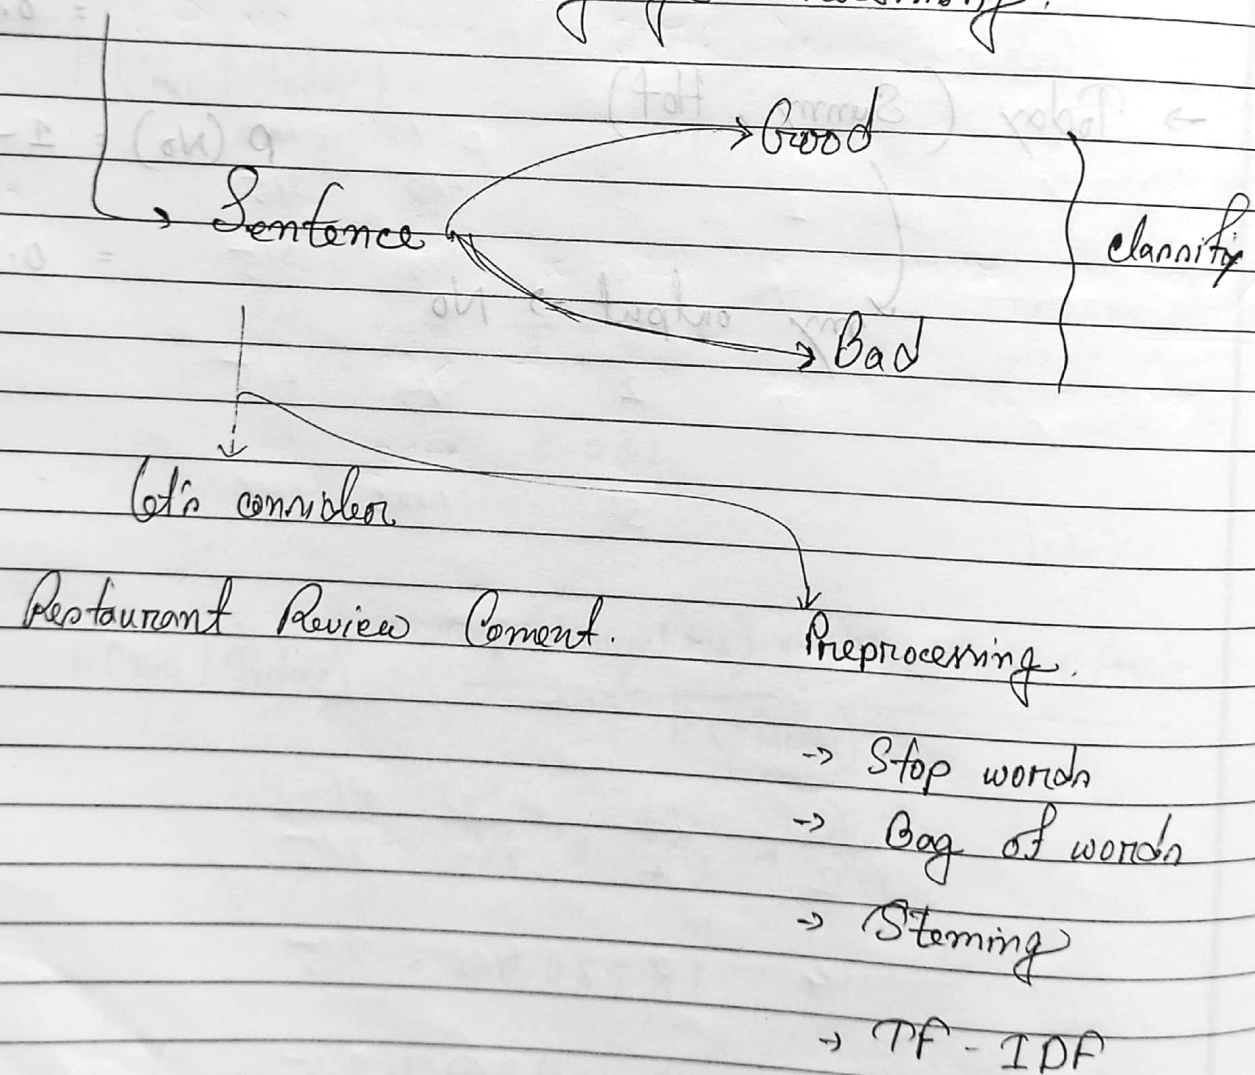 → Good
→ Sentence
classify
→ Bad
Let's consider
Restaurant Review Coment.
Preprocessing.
→ Stop words
→ Bag of words
→ Steming
→ TF - IDF